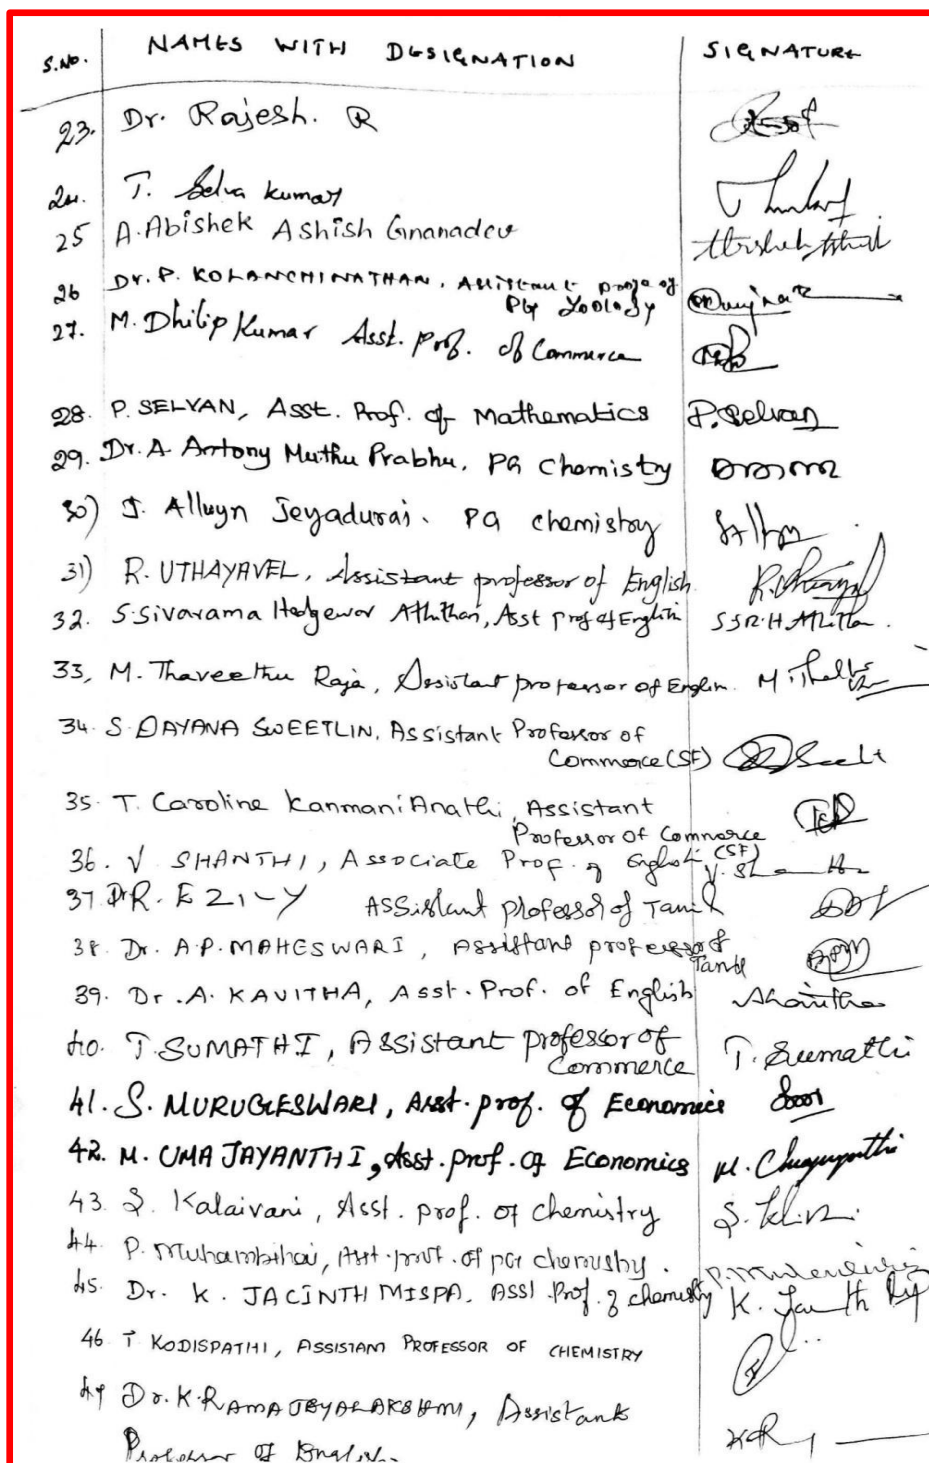 S.NO. NAMES WITH DESIGNATION SIGNATURE
23. Dr. Rajesh. R
24. T. Selva kumar
25 A. Abishek Ashish Gnanadev
26 Dr. P. KOLANCHINATHAN, Assistant prof of
PG Zoology
27. M. Dhilip Kumar Asst. Prof. of Commerce
28. P. SELVAN, Asst. Prof. of Mathematics P. Selvan
29. Dr. A Antony Muthu Prabhu, PG Chemistry
30) J. Allwyn Jeyadurai. PG chemistry
31) R. UTHAYAVEL, Assistant professor of English.
32. S. Sivarama Hedgewar Athithan, Asst prof of English S S R. H. Athithan.
33, M. Thaveethu Raja, Assistant professor of English.
34. S. DAYANA SWEETLIN, Assistant Professor of
Commerce (SF)
35. T. Caroline Kanmani Anathi, Assistant
Professor of Commerce
(SF)
36. V SHANTHI, Associate Prof. of English
37. Dr R. EZILY Assistant professor of Tamil
38. Dr. A.P. MAHESWARI, Assistant professor of
Tamil
39. Dr. A. KAVITHA, Asst. Prof. of English AKavitha
40. T. SUMATHI, Assistant professor of
Commerce T. Sumathi
41. S. MURUGESWARI, Asst. prof. of Economics
42. M. UMA JAYANTHI, Asst. prof. of Economics
43. S. Kalaivani, Asst. prof. of chemistry
44. P. Muhambihai, Asst. prof. of PG chemistry.
45. Dr. K. JACINTH MISPA, Asst. Prof. of chemistry
46. T KODISPATHI, ASSISTANT PROFESSOR OF CHEMISTRY
47 Dr. K. RAMAJEYALAKSHMI, Assistant
Professor of English.